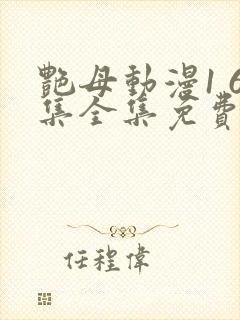 艷母動漫16
集全集免費
任程偉